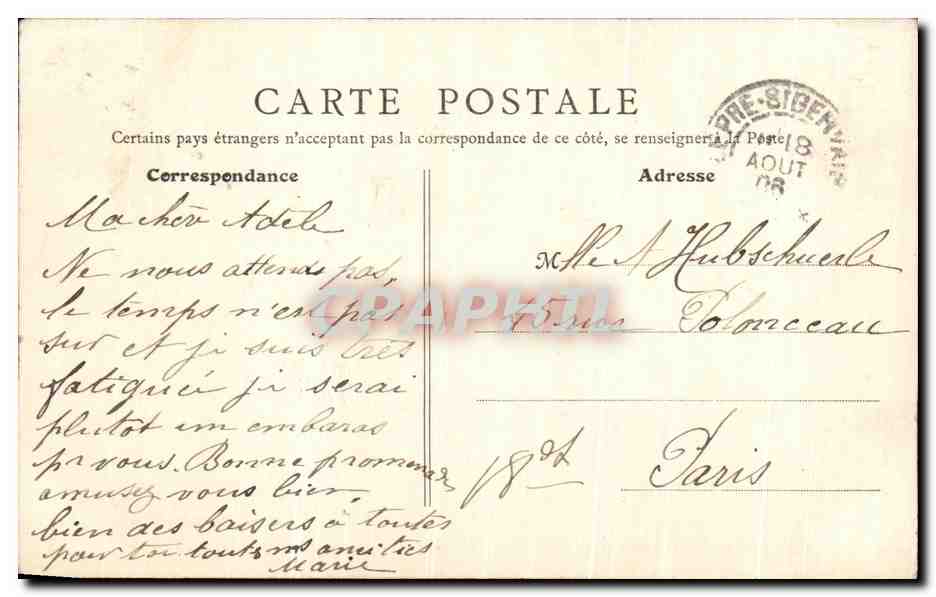 CARTE POSTALE
Certains pays étrangers n'acceptant pas la correspondance de ce côté, se renseigner à la Poste
Correspondance
Ma chère Adèle
Ne nous attends pas,
le temps n'est pas
sur et je suis très
fatiguée je serai
plutot un embaras
pr vous. Bonne promenade
amusez vous bien,
bien des baisers à toutes
pour toi toutes mes amitiés
Marie
Adresse
Mlle A Hubschuerle
45 rue Polonceau
Paris
18
PRE-ST GERVAIS
18
AOUT
06
CPAPHIL